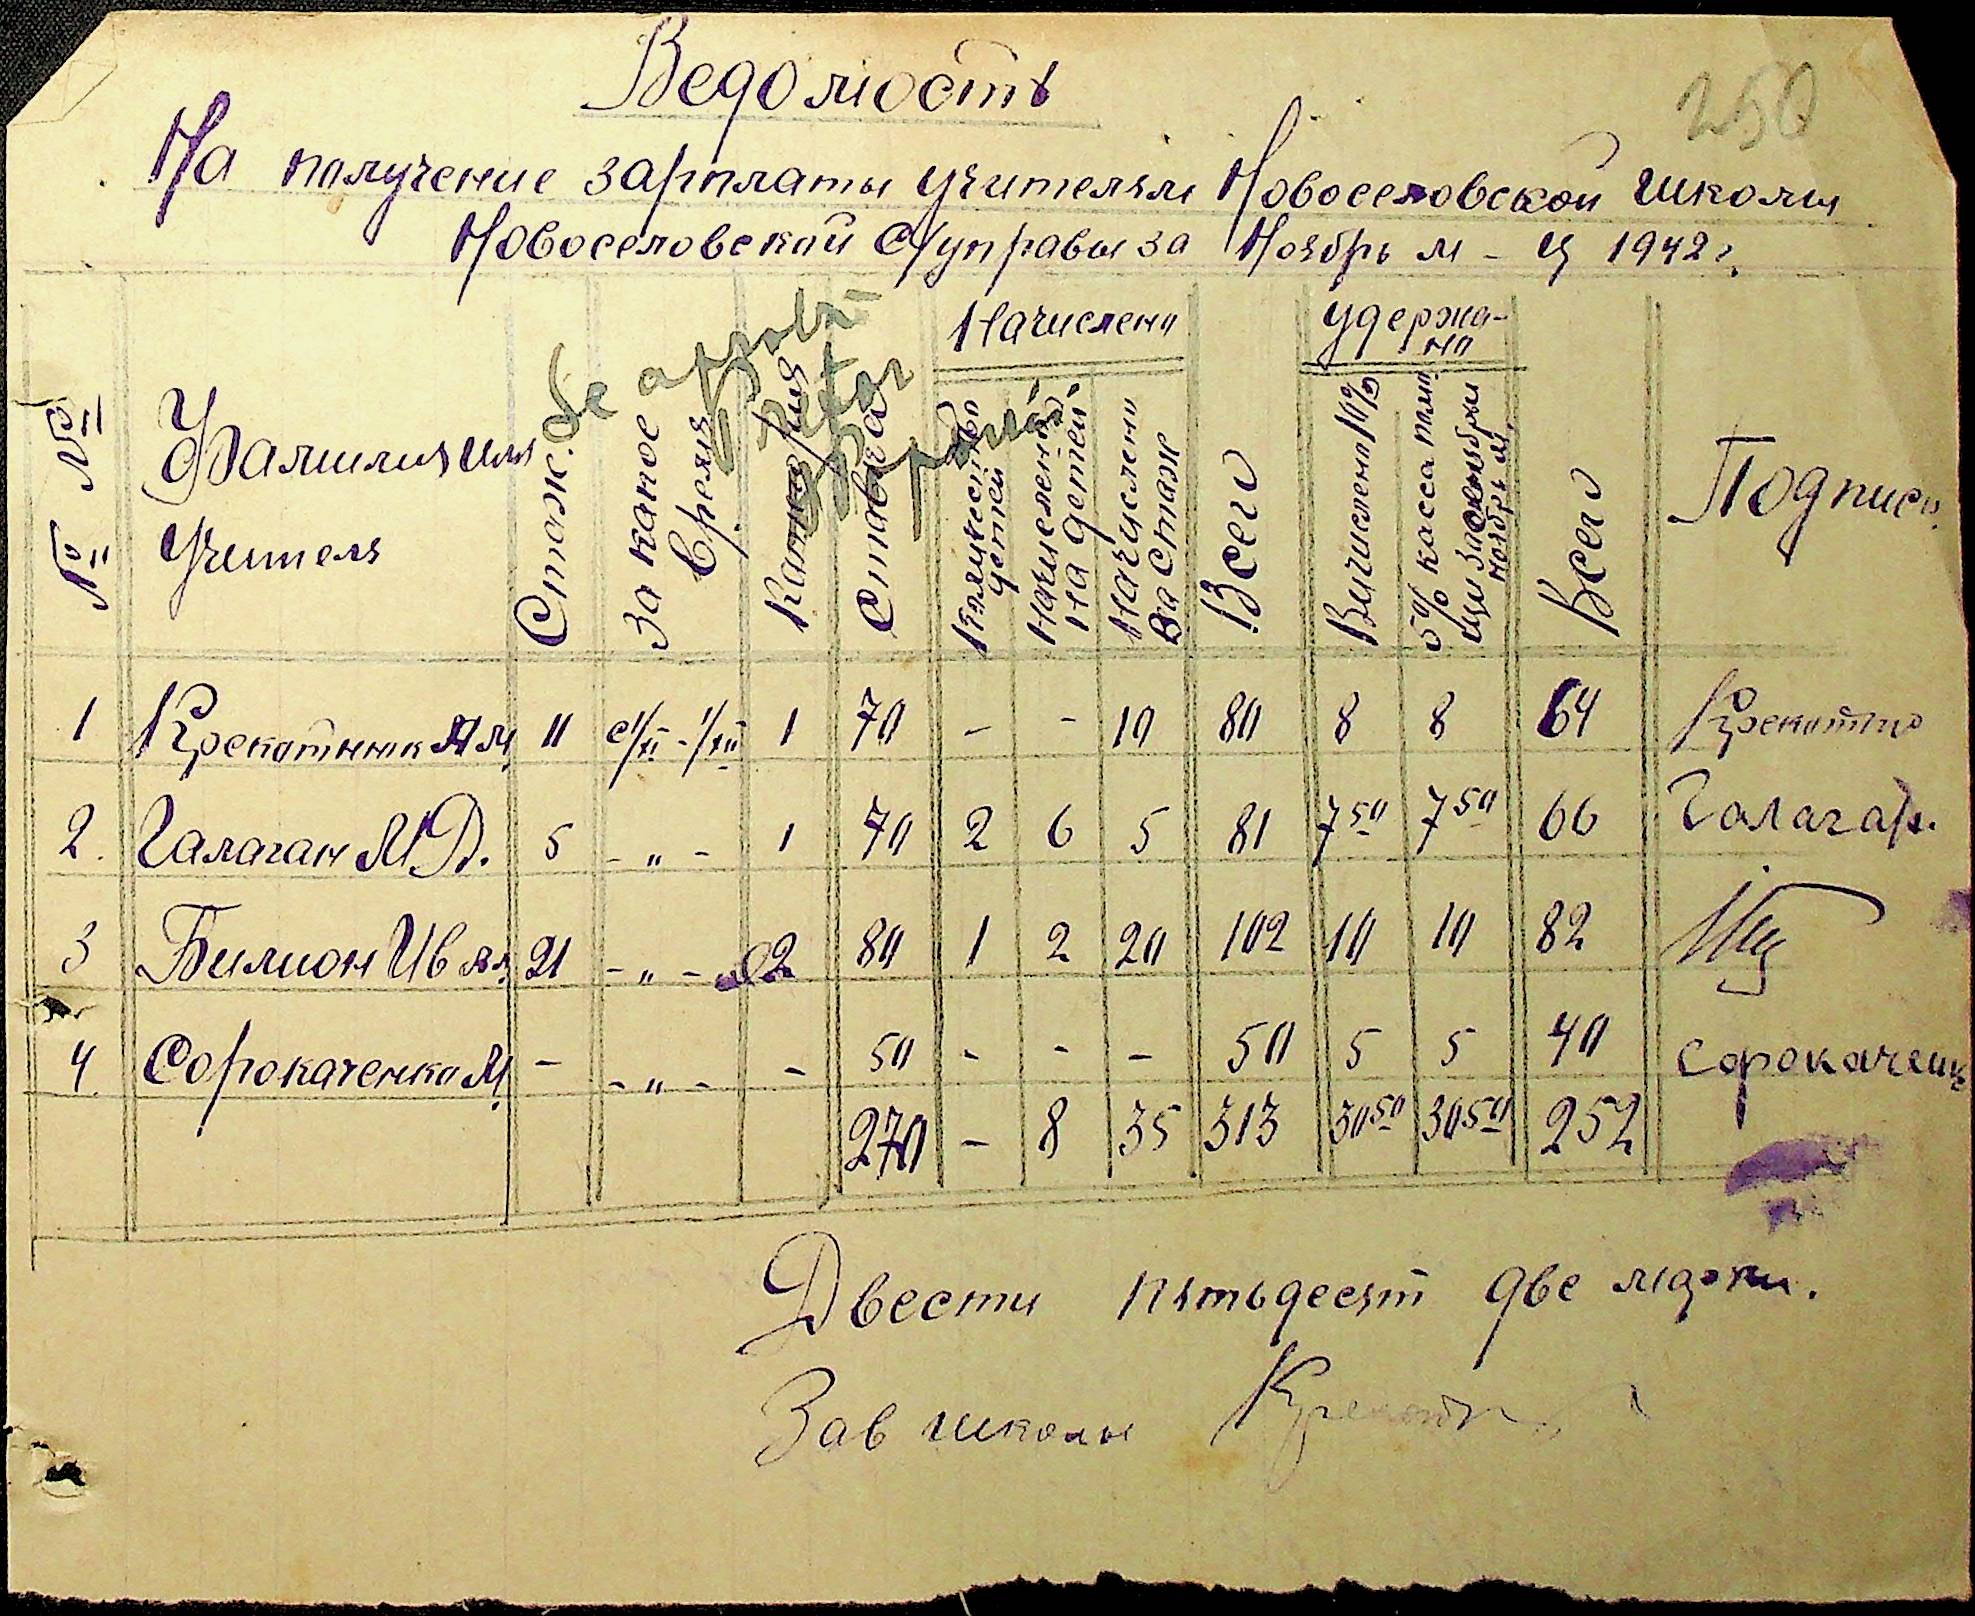 250
Ведомость
На получение зарплаты учителям Новоселовской школы
Новоселовской С/управы за Ноябрь м-ц 1942 г.
№№ п/п
Фамилия Имя учителя
Стаж.
За какое время
Категория
Ставка
Начислено
Количество детей
Начислено на детей
Начислено за стаж
Всего
Удержано
Вичислено 10%
5% касса пом
Всего
Подписи
Se aprobă
Pretor
1 Крекотнюк А М 11 с 1/XI - 1/XII 1 70 - - 10 80 8 8 64 Крекотню
2. Галаган М Д. 5 - " - 1 70 2 6 5 81 7 50 7 50 66
3 Билион Ив Ял 21 - " - 2 80 1 2 20 102 10 10 82
4 Сорокаченко М - - " - - 50 - - - 50 5 5 40 Сорокаченк
270 - 8 35 313 30 50 30 50 252
Двести пятьдесят две марки.
Зав школы